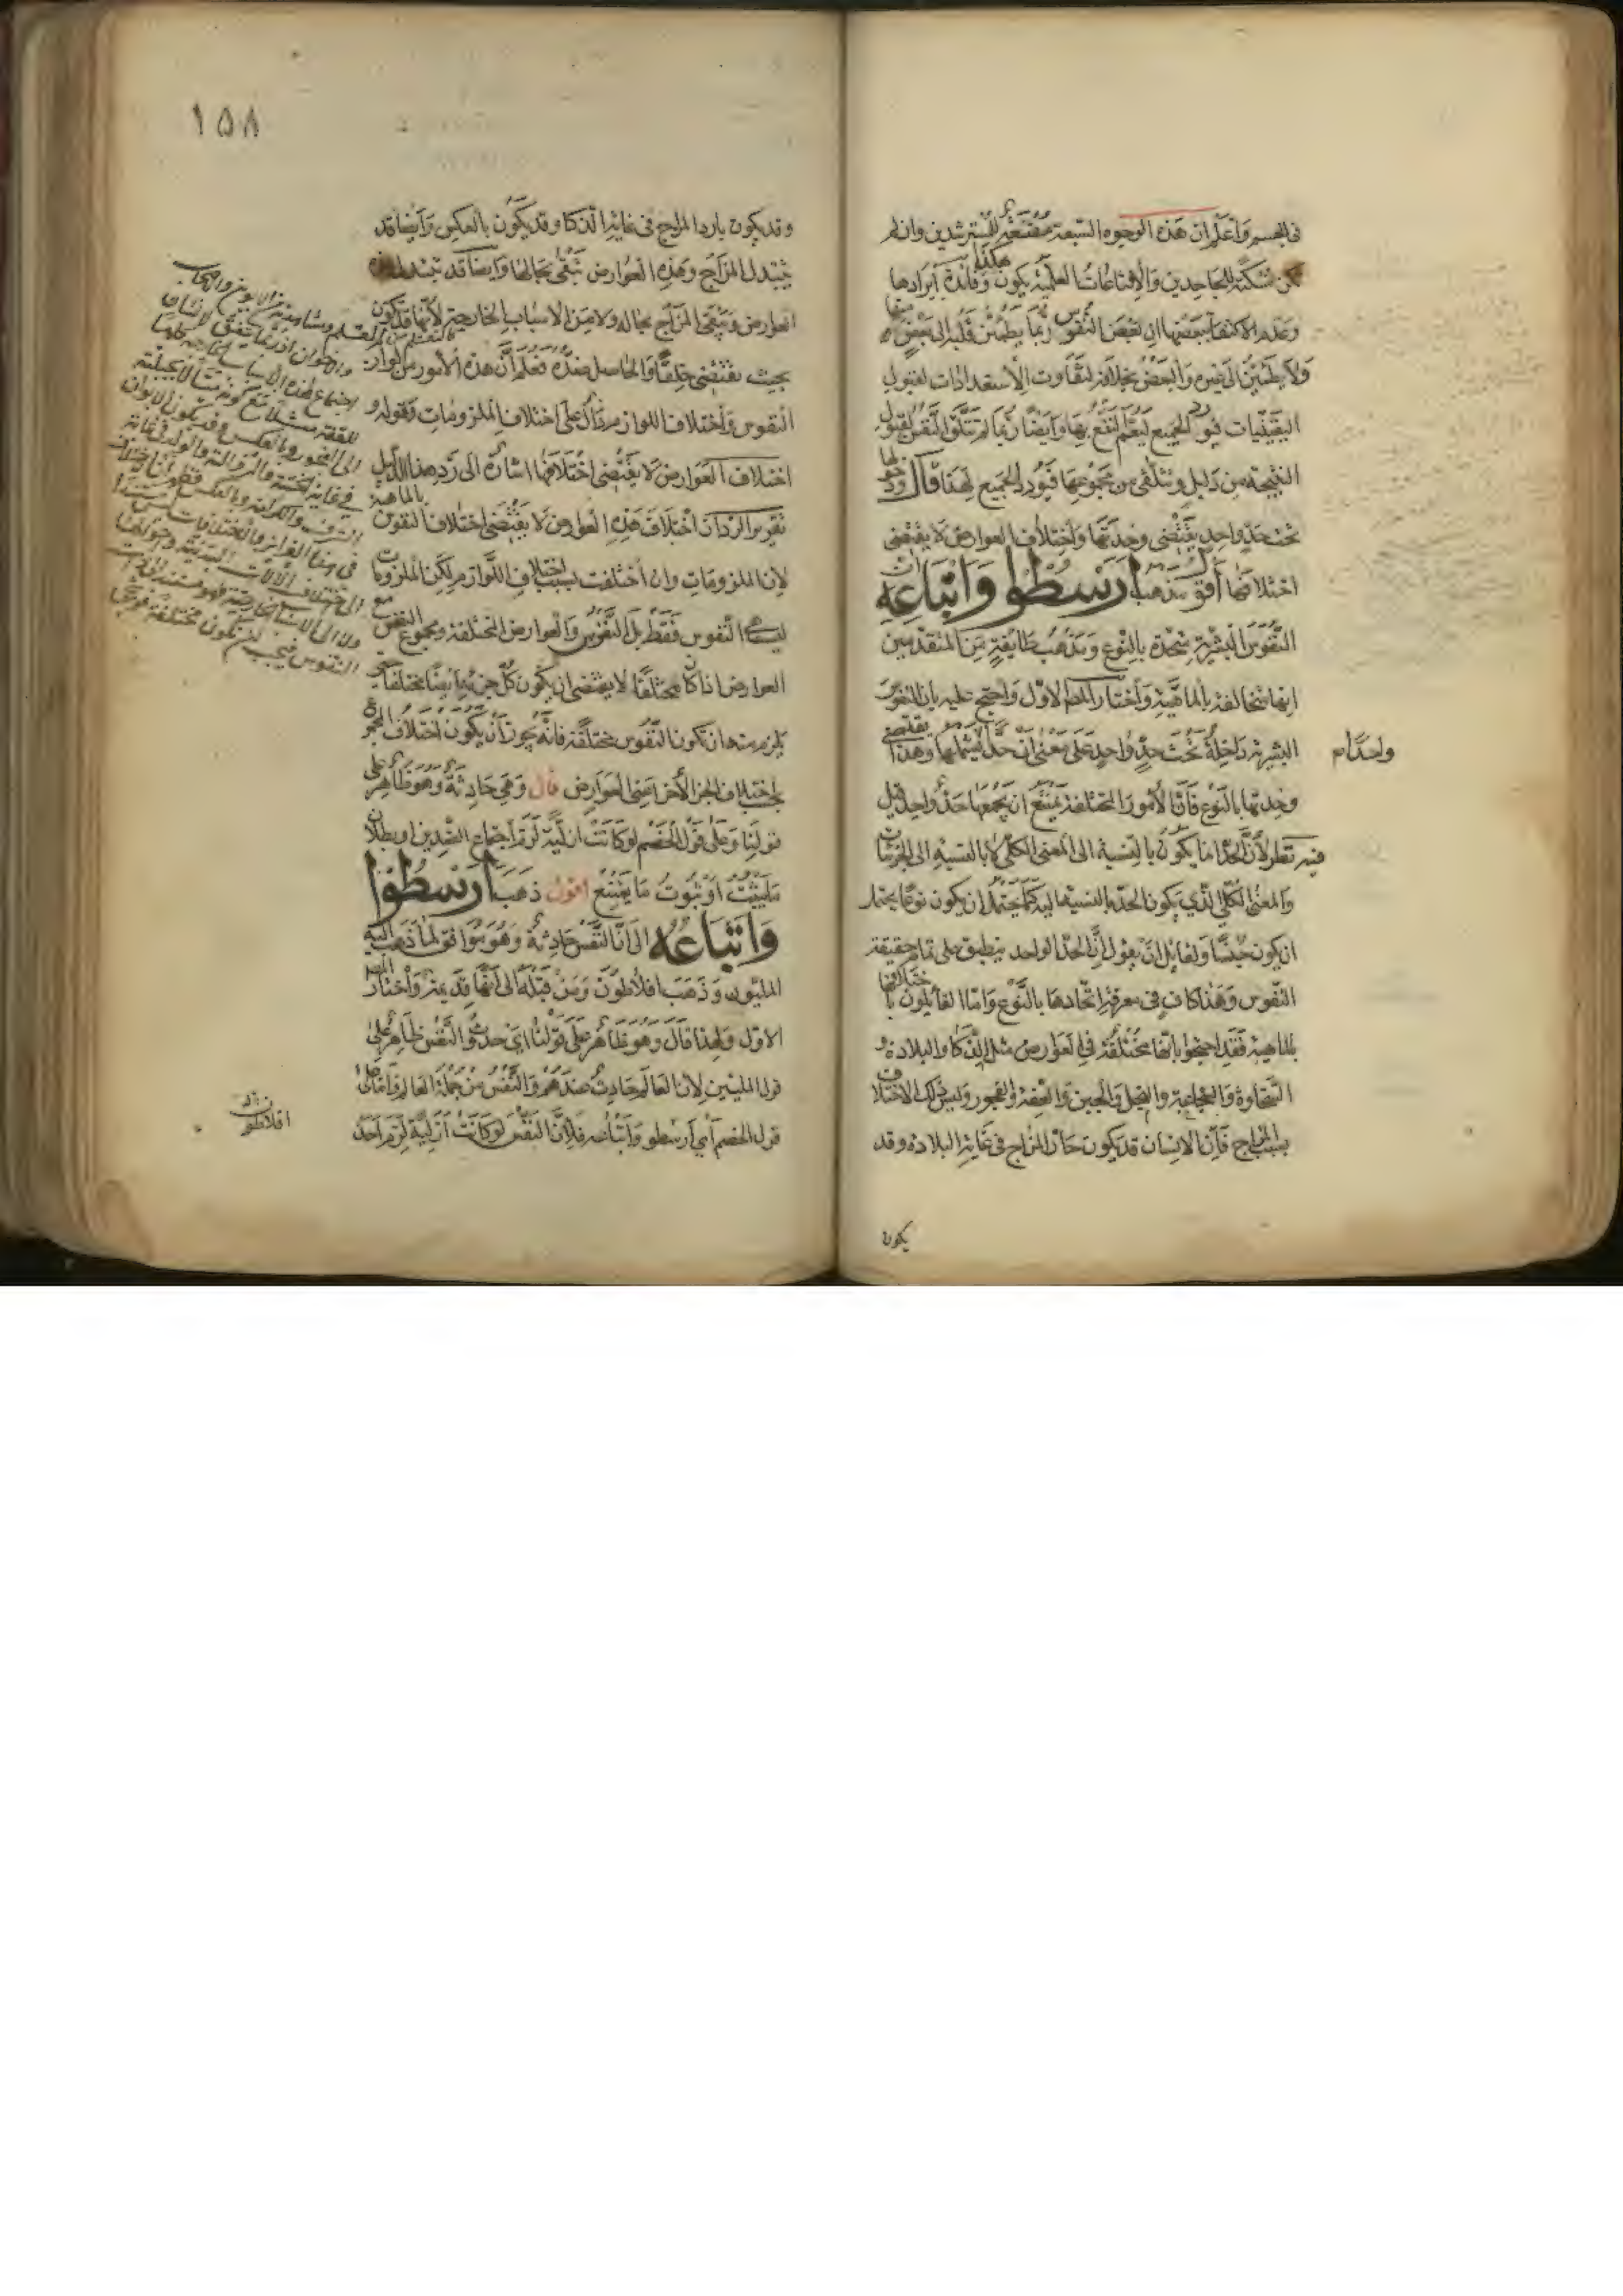 فى الجسم واعلم ان هذه الوجوه السبعة مقنعة للمسترشدين وان لم
تكن مسكتة للجاحدين والاقناعيات العلمية يكون هكذا وفائدة ايرادها
وعدم الاكتفاء ببعضها ان بعض النفوس ربما يطمئن قلبه الى بعض منها
ولا يطمئن الى غيره والبعض بخلافه لتفاوت الاستعدادات لقبول
اليقينيات فيورد الجميع ليعم النفع بها وايضا ربما لم تتلق النفس لقبول
النتيجة من دليل وتتلقى من مجموعها فيورد الجميع لهذا قال ودخولها
تحت حد واحد يقتضى وحدتها واختلاف العوارض لا يقتضى
اختلافها اقول مذهب ارسطوا واتباعه ان
النفوس البشرية متحدة بالنوع ومذهب طايفة من المتقدمين
انها متخالفة بالماهية واختار المص الاول واحتج عليه بان النفوس
البشرية داخلة تحت حد واحد على معنى ان حدا يشملها وهذا يقتضى
واحدا م
وحدتها بالنوع فان الامور المختلفة يمتنع ان يجمعها حد واحد قيل
فيه نظر لان الحد انما يكون بالنسبة الى المعنى الكلى لا بالنسبة الى الجزئيات
والمعنى الكلى الذي يكون الحد بالنسبة اليه كما يحتمل ان يكون نوعا يحتمل
ان يكون جنسا ولقايل ان يقول ان الحد الواحد ينطبق على تمام حقيقة
النفوس وهذا كاف فى معرفة اتحادها بالنوع واما القائلون باختلافها
بالماهية فقد احتجوا بانها مختلفة فى العوارض مثل الذكا والبلادة و
السخاوة والشجاعة والبخل والجبن والعفة والفجور وليس ذلك الاختلاف
بسبب المزاج فان الانسان قد يكون حار المزاج فى غاية البلادة وقد
يكون
١٥٨
وقد يكون بارد المزاج فى غاية الذكا وقد يكون بالعكس وايضا قد
يتبدل المزاج وهذه العوارض تبقى بحالها وايضا قد تتبدل هذه
العوارض ويبقى المزاج بحاله ولا من الاسباب الخارجية لانها قد تكون
بحيث يقتضى خلقا والحاصل ضده فعلم ان هذه الامور من لوازم
النفوس واختلاف اللوازم دال على اختلاف الملزومات وقوله و
اختلاف العوارض لا يقتضى اختلافها اشارة الى رد هذا الدليل
تقرير الرد ان اختلاف هذه العوارض لا يقتضى اختلاف النفوس بالماهية
لان الملزومات وان اختلفت بسبب اختلاف اللوازم لكن الملزومات
ليست النفوس فقط بل النفوس والعوارض المختلفة ومجموع النفس مع
العوارض اذا كان مختلفا لا يقتضى ان يكون كل جزء منه ايضا مختلفا
يلزم منه ان تكون النفوس مختلفة فانه يجوز ان يكون اختلاف المجموع
باختلاف الجزء الاخر اعنى العوارض قال وهى حادثة وهو ظاهر على
قولنا وعلى قول الخصم لو كانت ازلية لزم اجتماع الضدين او بطلان
ما يثبت او ثبوت ما يمتنع اقول ذهب ارسطوا
واتباعه الى ان النفس حادثة وهو موافق لما ذهب اليه
المليون وذهب افلاطون ومن قبله الى انها قديمة واختار المص
الاول ولهذا قال وهو ظاهر على قولنا اى حدوث النفس ظاهر على
قول المليين لان العالم حادث عندهم والنفس من جملة العالم واما على
قول الخصم اى ارسطو واتباعه فلان النفس لو كانت ازلية لزم احد
افلاطون